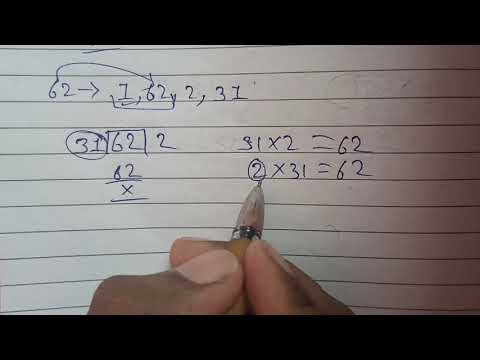 62 → 1, 62, 2, 31
31 62 2 31 × 2 = 62
62 2 × 31 = 62
x